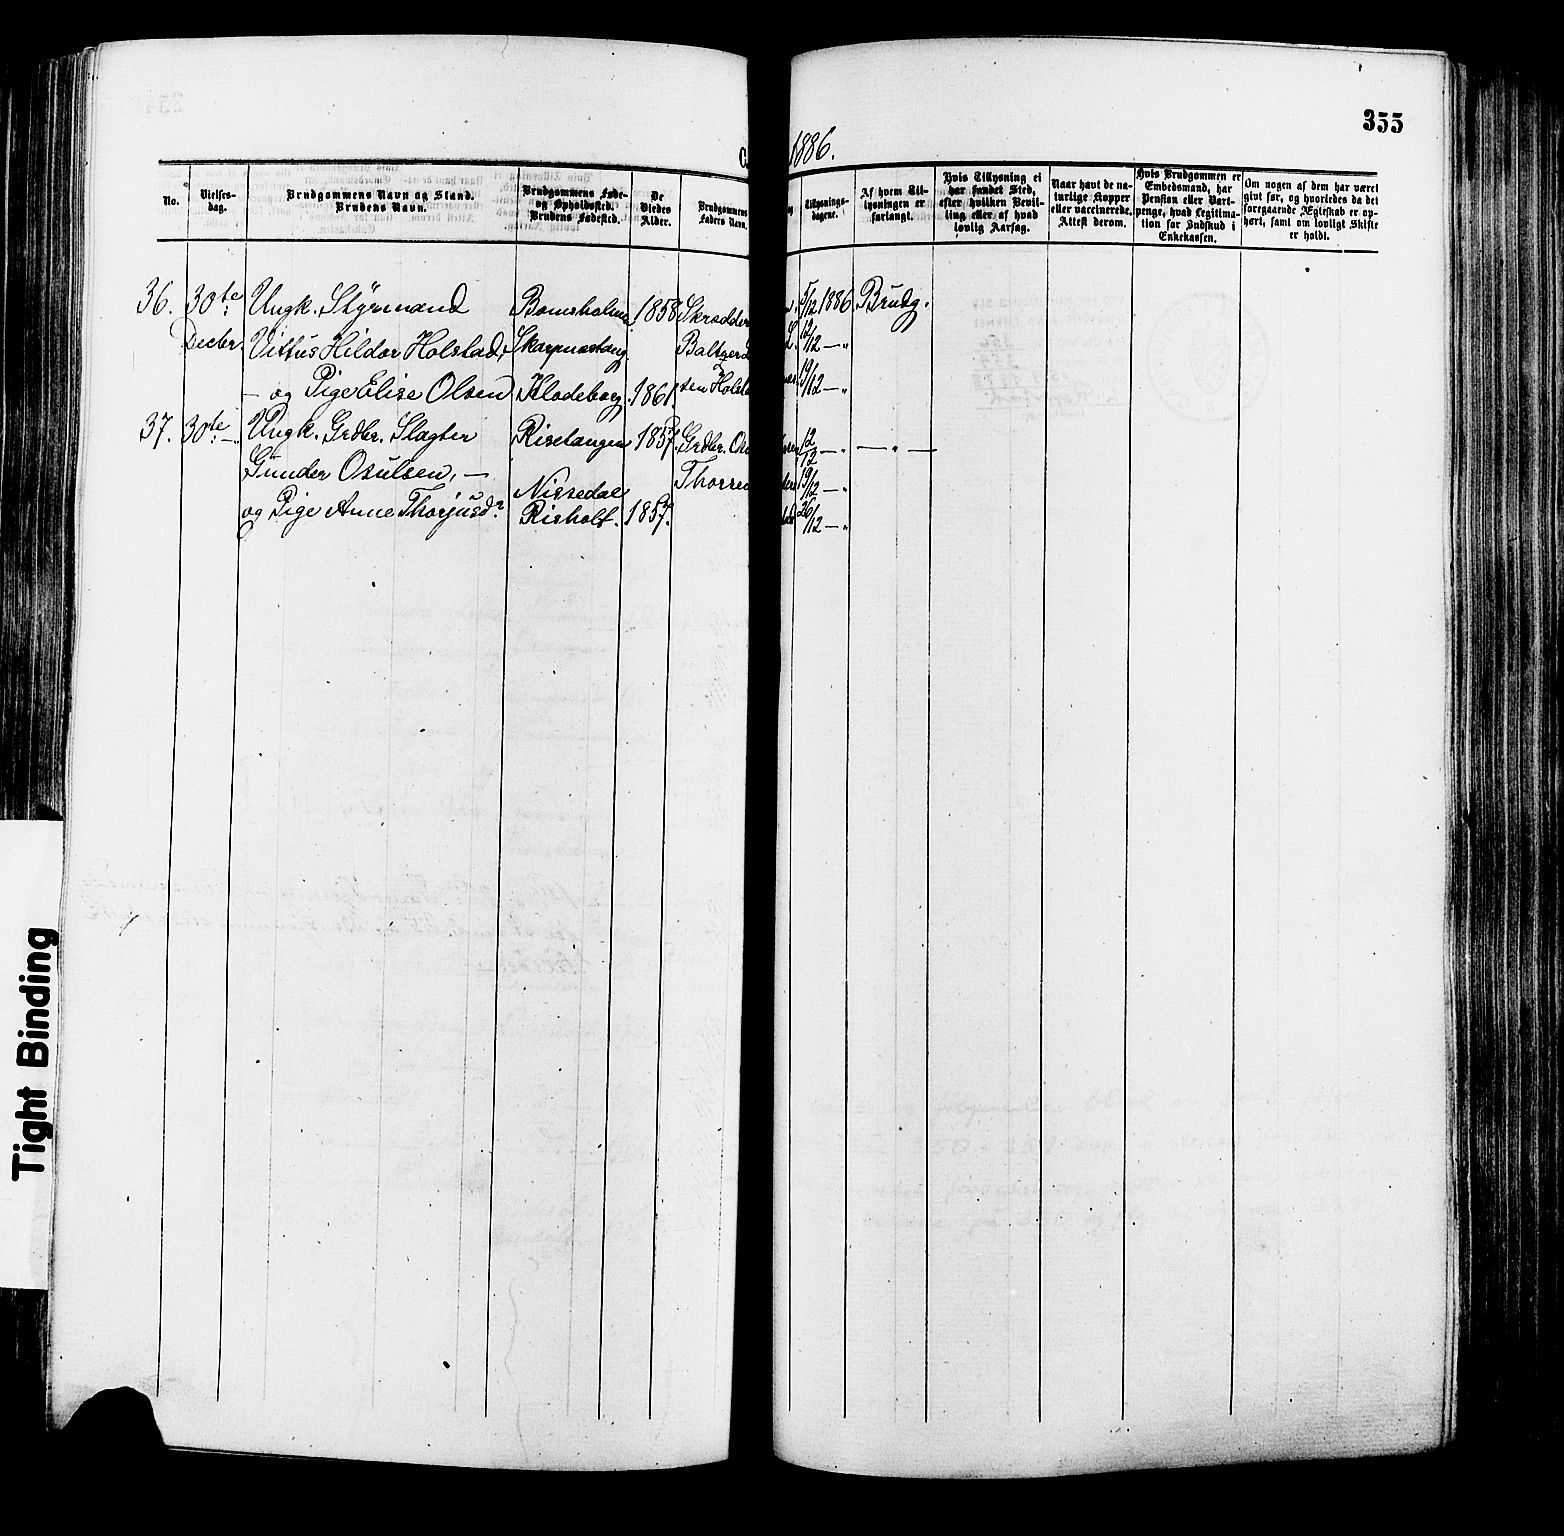 355
1886.
No.
Vielses-
dag.
Brudgommens Navn og Stand.
Brudens Navn.
Brudgommens Føde-
og Opholdssted.
Brudens Fødested.
De
Viedes
Alder.
Brudgommens
Faders Navn.
Tillysnings-
dagene.
Af hvem Til-
lysningen er
forlangt.
Hvis Tillysning ei
har fundet Sted,
efter hvilken Bevil-
ling eller af hvad
lovlig Aarsag.
Naar havt de na-
turlige Kopper
eller vaccinerede.
Attest derom.
Hvis Brudgommen er
Embedsmand, har
Pension eller Vart-
penge, hvad Legitima-
tion for Indskud i
Enkekassen.
Om nogen af dem har været
givt før, og hvorledes da det
foregaaende Ægteskab er op-
hørt, samt om lovligt Skifte
er holdt.
36. 30te Ungk. Styrmand Bomsholmen 1858 Skrædder 5/12 1886 Brudg.
Decbr. Vittus Hildor Holstad, Skarpnestang Baltzer 12/12 — „
— og Pige Elise Olsen Klodeborg. 1861. sen Holst 19/12 — „
37. 30te — Ungk. Grdbr. Slagter Risetangen 1857. Grdbr. Osu 12/12 — „ — „ —
Gunder Osulsen, — Nissedal Thorre 19/12 — „
og Pige Anne Thorjusdr Risholt. 1857. 26/12 — „
Tight Binding